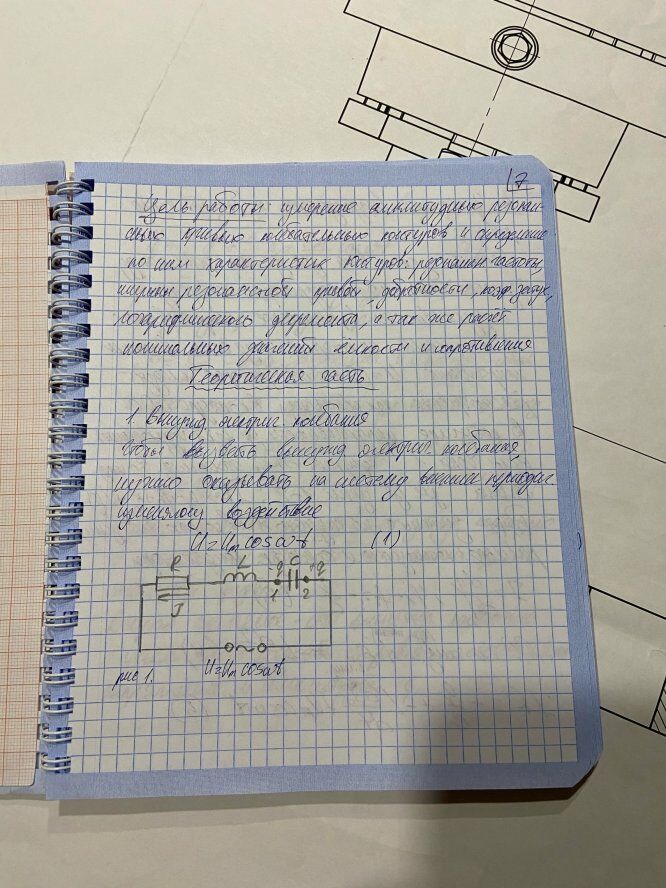 17
Цель работы: измерение амплитудных резонан-
сных кривых колебательных контуров и определение
по ним характеристик контуров: резонансн частоты,
ширины резонансной кривой, добротности, коэф. затух,
логарифмического декремента, а так же расчет
номинальных значений емкости и сопротивления
Теоретическая часть
1. Вынужд электрич колебания
Чтобы вызвать вынужд электрич. колебания,
нужно оказывать на систему внешнее периодич
изменяющ воздействие
U=Uₘcosωt (1)
R L -q C +q
J 1 2
U=Uₘcosωt
рис 1.